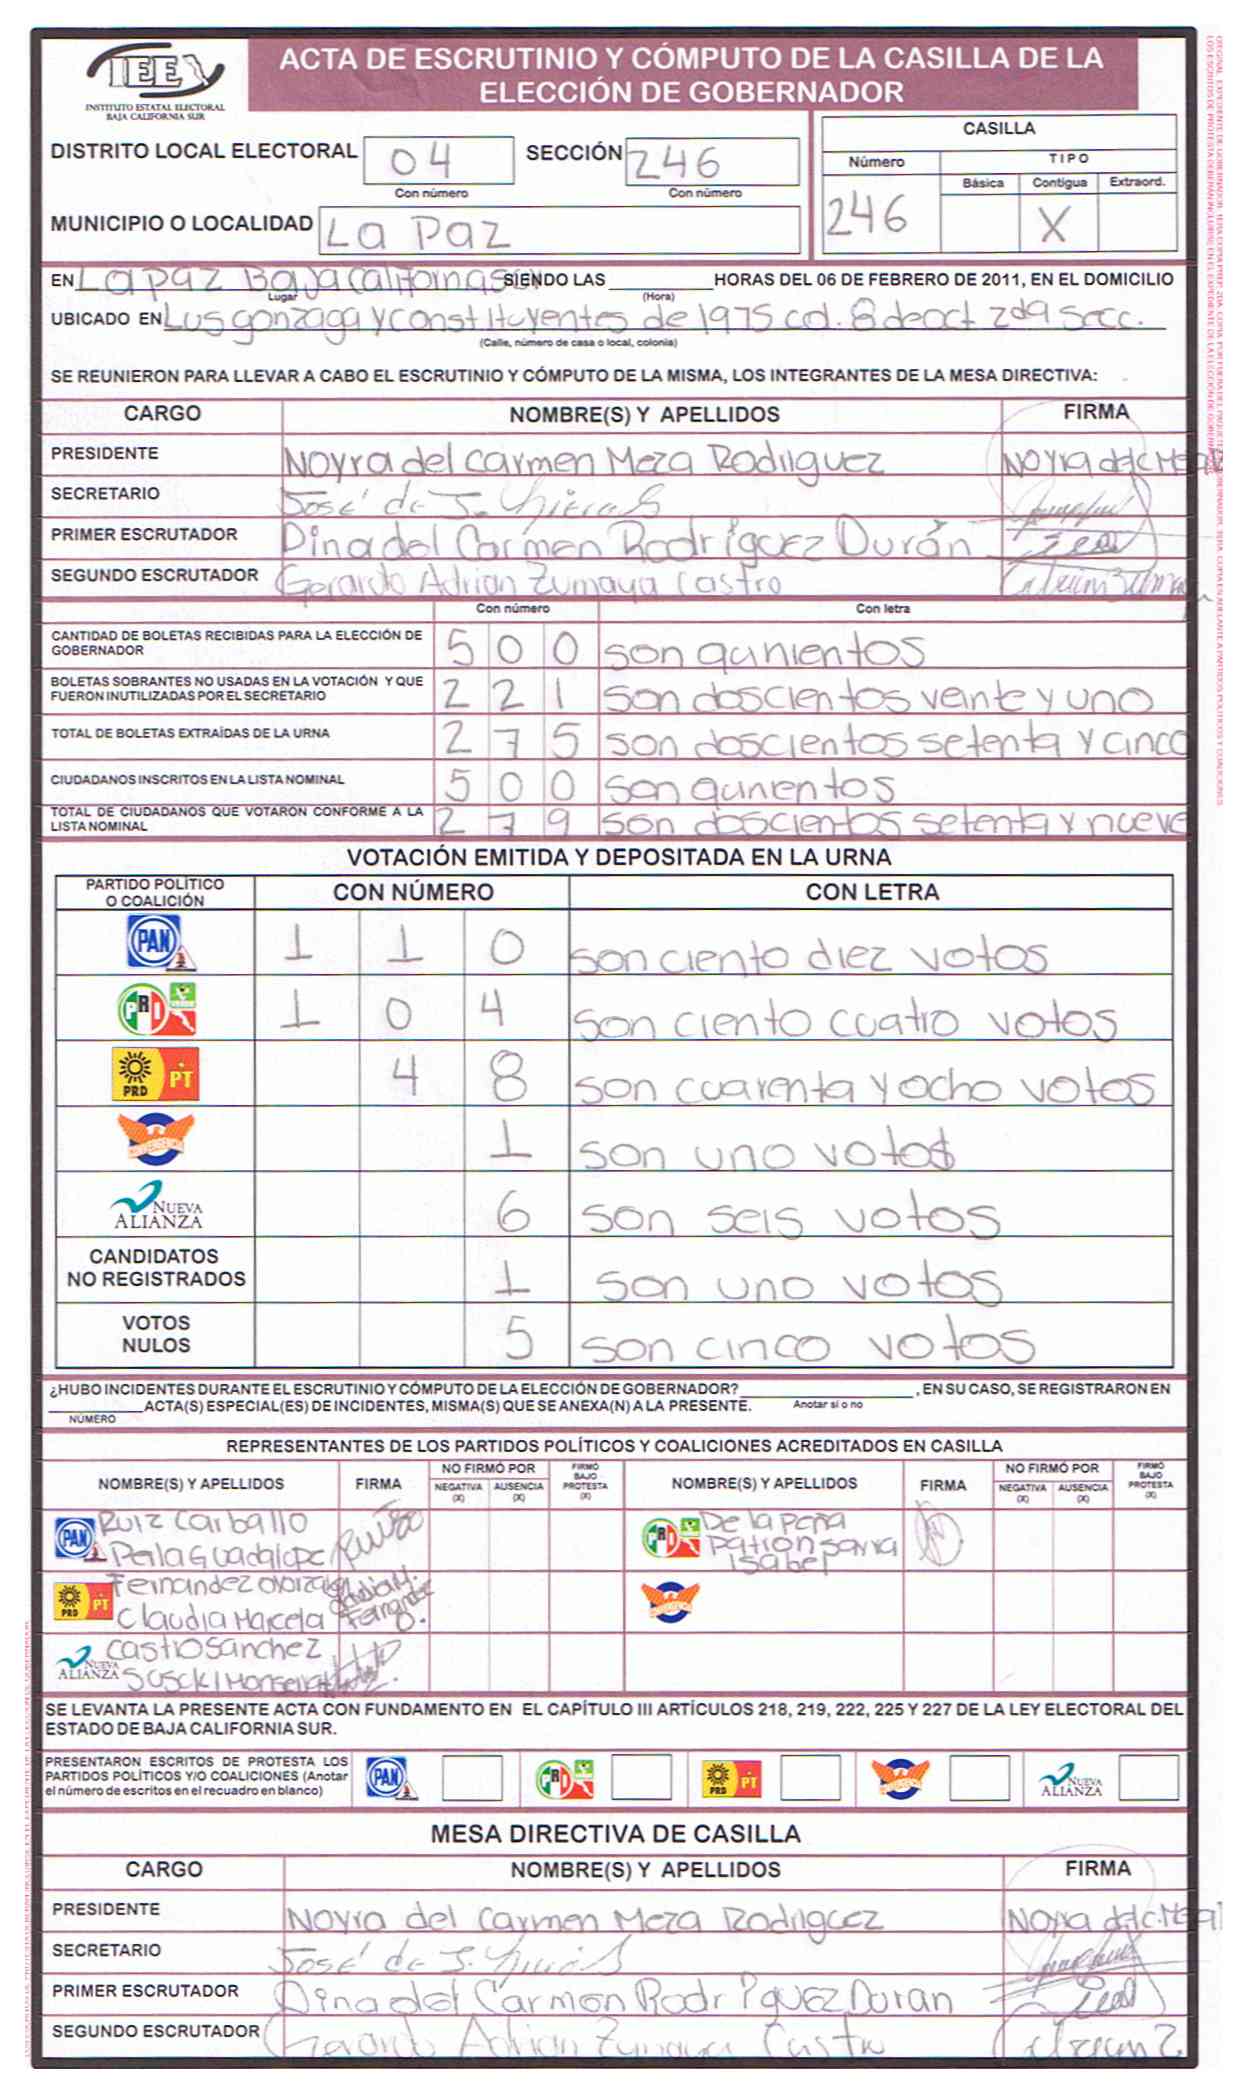 IEEX
INSTITUTO ESTATAL ELECTORAL
BAJA CALIFORNIA SUR
ACTA DE ESCRUTINIO Y CÓMPUTO DE LA CASILLA DE LA
ELECCIÓN DE GOBERNADOR
DISTRITO LOCAL ELECTORAL 04 SECCIÓN 246
Con número Con número
MUNICIPIO O LOCALIDAD La Paz
CASILLA
Número TIPO
Básica Contigua Extraord.
246 X
EN La paz Baja California SIENDO LAS HORAS DEL 06 DE FEBRERO DE 2011, EN EL DOMICILIO
Lugar (Hora)
UBICADO EN Lus gonzaga y constituyentes de 1975 col. 8 de oct 2da secc.
(Calle, número de casa o local, colonia)
SE REUNIERON PARA LLEVAR A CABO EL ESCRUTINIO Y CÓMPUTO DE LA MISMA, LOS INTEGRANTES DE LA MESA DIRECTIVA:
CARGO NOMBRE(S) Y APELLIDOS FIRMA
PRESIDENTE Noyra del Carmen Meza Rodriguez
SECRETARIO José de J.
PRIMER ESCRUTADOR Dina del Carmen Rodríguez Durán
SEGUNDO ESCRUTADOR Gerardo Adrian Zumaya Castro
Con número Con letra
CANTIDAD DE BOLETAS RECIBIDAS PARA LA ELECCIÓN DE
GOBERNADOR 500 son qunientos
BOLETAS SOBRANTES NO USADAS EN LA VOTACIÓN Y QUE
FUERON INUTILIZADAS POR EL SECRETARIO 221 son doscientos veinte y uno
TOTAL DE BOLETAS EXTRAÍDAS DE LA URNA 275 son doscientos setenta y cinco
CIUDADANOS INSCRITOS EN LA LISTA NOMINAL 500 son qunientos
TOTAL DE CIUDADANOS QUE VOTARON CONFORME A LA
LISTA NOMINAL 279 son doscientos setenta y nueve
VOTACIÓN EMITIDA Y DEPOSITADA EN LA URNA
PARTIDO POLÍTICO
O COALICIÓN CON NÚMERO CON LETRA
PAN 110 son ciento diez votos
PRI VERDE 104 son ciento cuatro votos
PRD PT 48 son cuarenta y ocho votos
CONVERGENCIA 1 son uno votos
NUEVA ALIANZA 6 son seis votos
CANDIDATOS
NO REGISTRADOS 1 son uno votos
VOTOS
NULOS 5 son cinco votos
¿HUBO INCIDENTES DURANTE EL ESCRUTINIO Y CÓMPUTO DE LA ELECCIÓN DE GOBERNADOR? , EN SU CASO, SE REGISTRARON EN
ACTA(S) ESPECIAL(ES) DE INCIDENTES, MISMA(S) QUE SE ANEXA(N) A LA PRESENTE. Anotar sí o no
NÚMERO
REPRESENTANTES DE LOS PARTIDOS POLÍTICOS Y COALICIONES ACREDITADOS EN CASILLA
NOMBRE(S) Y APELLIDOS FIRMA NO FIRMÓ POR NEGATIVA (X) AUSENCIA (X) FIRMÓ BAJO PROTESTA (X) NOMBRE(S) Y APELLIDOS FIRMA NO FIRMÓ POR NEGATIVA (X) AUSENCIA (X) FIRMÓ BAJO PROTESTA (X)
PAN Ruiz Carballo
Perla Guadalupe
PRI VERDE De la Peña
Patron Sarra
Isabel
PRD PT Fernandez
Claudia Marcela
CONVERGENCIA
NUEVA ALIANZA Castro Sanchez
SE LEVANTA LA PRESENTE ACTA CON FUNDAMENTO EN EL CAPÍTULO III ARTÍCULOS 218, 219, 222, 225 Y 227 DE LA LEY ELECTORAL DEL
ESTADO DE BAJA CALIFORNIA SUR.
PRESENTARON ESCRITOS DE PROTESTA LOS
PARTIDOS POLÍTICOS Y/O COALICIONES (Anotar
el número de escritos en el recuadro en blanco)
PAN PRI VERDE PRD PT CONVERGENCIA NUEVA ALIANZA
MESA DIRECTIVA DE CASILLA
CARGO NOMBRE(S) Y APELLIDOS FIRMA
PRESIDENTE Noyra del Carmen Meza Rodriguez
SECRETARIO José de J.
PRIMER ESCRUTADOR Dina del Carmen Rodríguez Duran
SEGUNDO ESCRUTADOR Gerardo Adrian Zumaya Castro